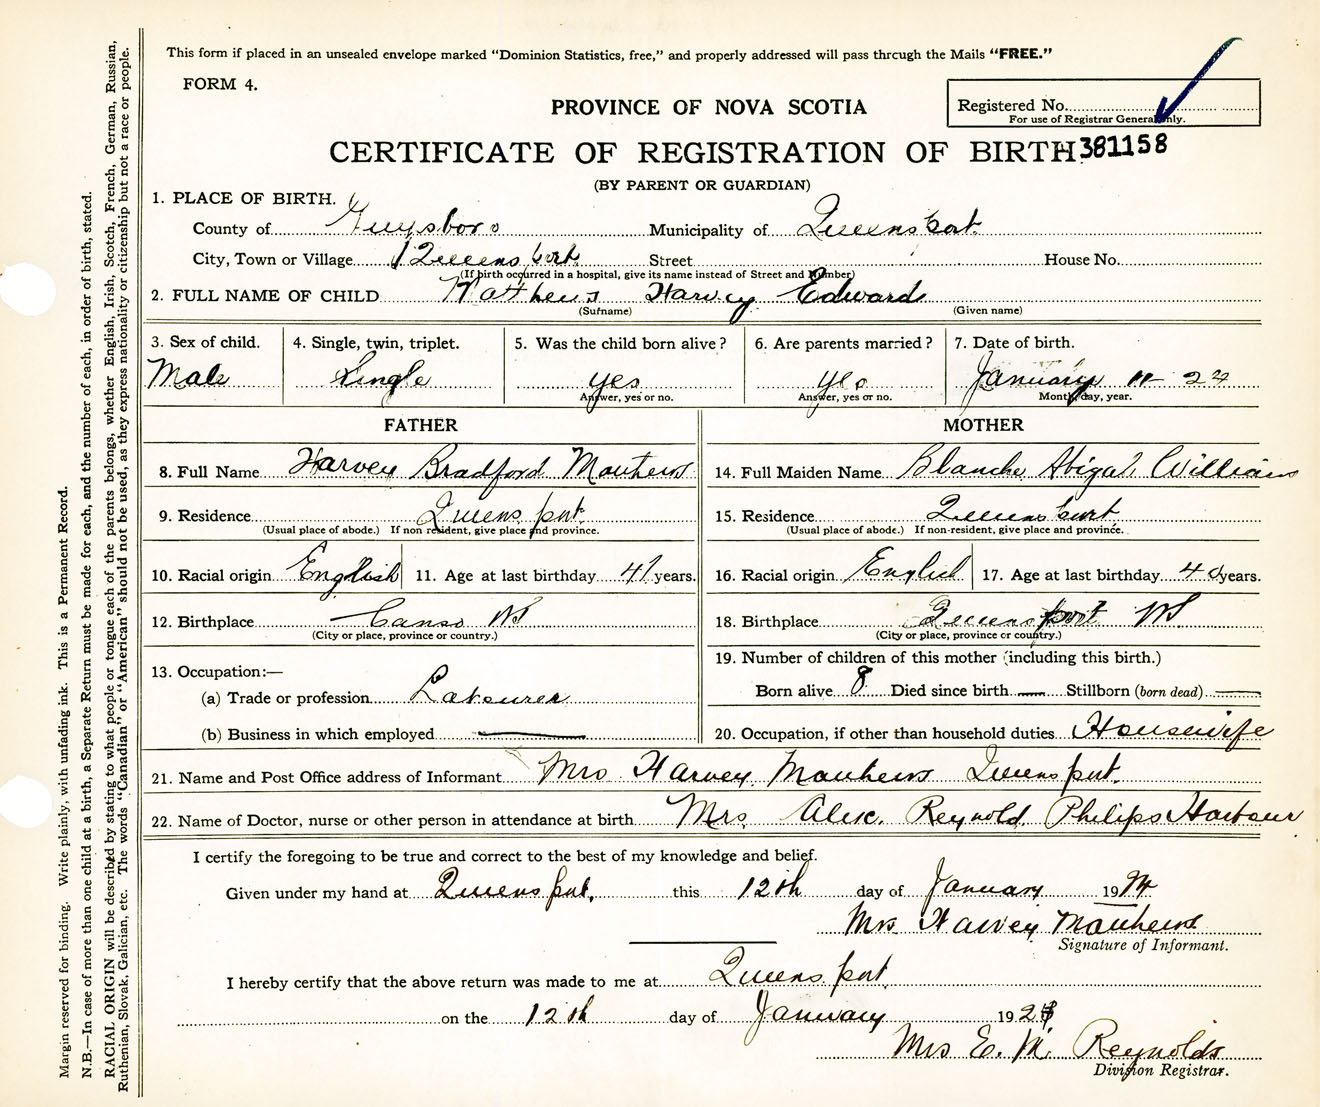 This form if placed in an unsealed envelope marked "Dominion Statistics, free," and properly addressed will pass through the Mails "FREE."
FORM 4.
PROVINCE OF NOVA SCOTIA
Registered No.
For use of Registrar General only.
CERTIFICATE OF REGISTRATION OF BIRTH 381158
(BY PARENT OR GUARDIAN)
1. PLACE OF BIRTH.
County of Guysboro Municipality of Queensport
City, Town or Village Queensport Street House No.
(If birth occurred in a hospital, give its name instead of Street and Number)
2. FULL NAME OF CHILD Matthews Harvey Edward
(Surname) (Given name)
3. Sex of child. 4. Single, twin, triplet. 5. Was the child born alive? 6. Are parents married? 7. Date of birth.
Male Single yes yes January 11 - 24
Answer, yes or no. Answer, yes or no. Month, day, year.
FATHER MOTHER
8. Full Name Harvey Bradford Mauthews 14. Full Maiden Name Blanche Abigal Williams
9. Residence Queensport 15. Residence Queensport
(Usual place of abode.) If non resident, give place and province. (Usual place of abode.) If non-resident, give place and province.
10. Racial origin English 11. Age at last birthday 41 years. 16. Racial origin English 17. Age at last birthday 40 years.
12. Birthplace Canso NS 18. Birthplace Queensport NS
(City or place, province or country.) (City or place, province or country.)
13. Occupation:— 19. Number of children of this mother (including this birth.)
(a) Trade or profession Labourer Born alive 8 Died since birth — Stillborn (born dead) —
(b) Business in which employed — 20. Occupation, if other than household duties Housewife
21. Name and Post Office address of Informant Mrs Harvey Mauthews Queensport.
22. Name of Doctor, nurse or other person in attendance at birth Mrs Alex. Reynold Philips Harbour
I certify the foregoing to be true and correct to the best of my knowledge and belief.
Given under my hand at Queensport, this 12th day of January 19
Mrs Harvey Mauthews
Signature of Informant.
I hereby certify that the above return was made to me at Queensport
on the 12th day of January 192
Mrs E. M. Reynolds
Division Registrar.
Margin reserved for binding. Write plainly, with unfading ink. This is a Permanent Record.
N.B.—In case of more than one child at a birth, a Separate Return must be made for each, and the number of each, in order of birth, stated.
RACIAL ORIGIN will be described by stating to what people or tongue each of the parents belongs, whether English, Irish, Scotch, French, German, Russian,
Ruthenian, Slovak, Galician, etc. The words "Canadian" or "American" should not be used, as they express nationality or citizenship but not a race or people.